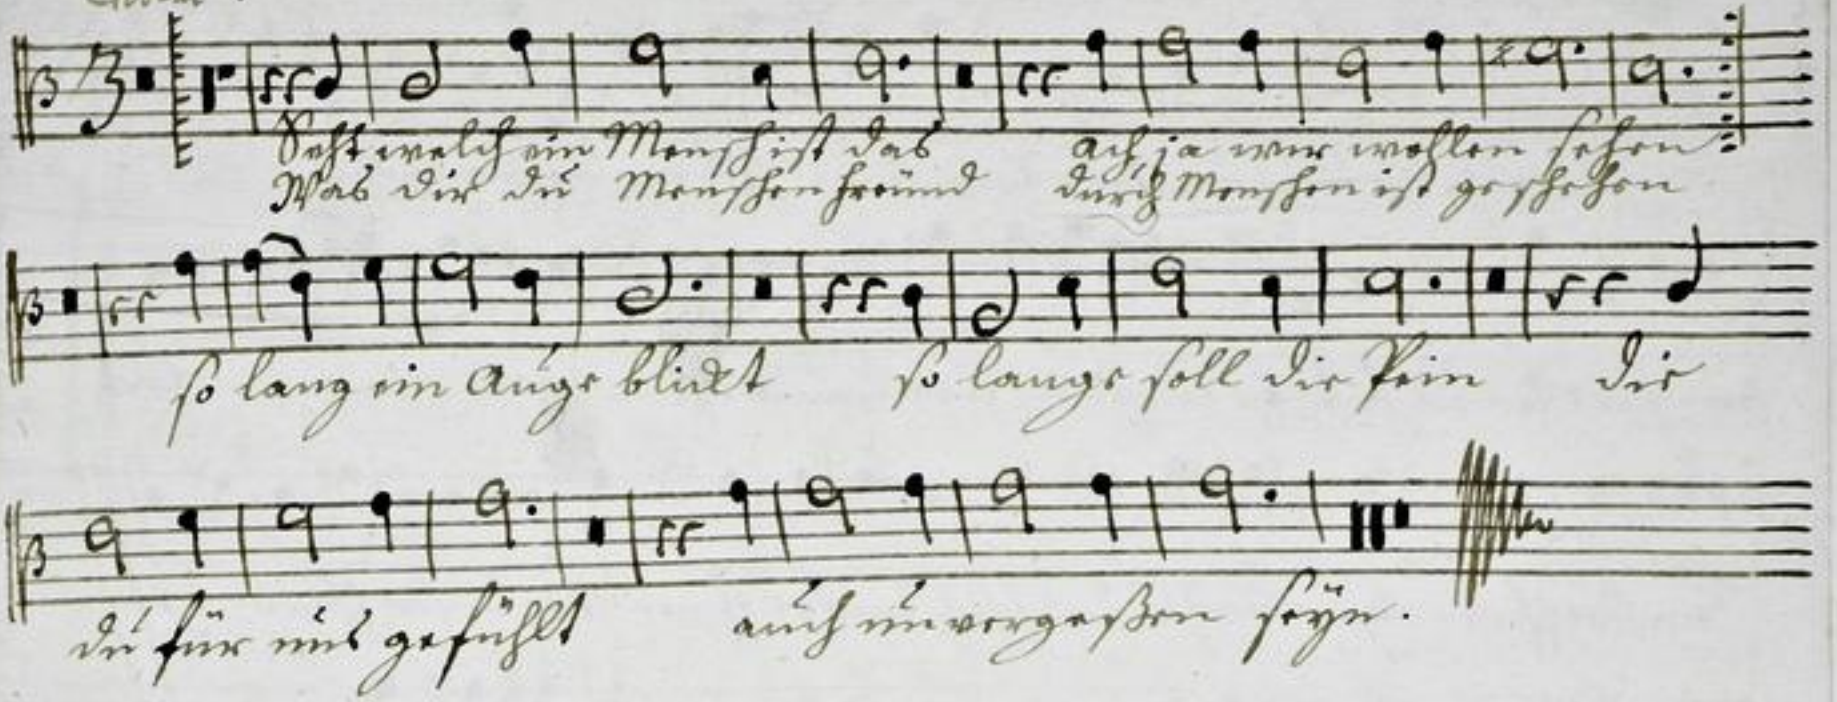 Seht welch ein Mensch ist das ach ja wir wollen sehen
Was dir du Menschenfreund durch Menschen ist geschehen
so lang ein Auge blickt so lange soll die Pein die
du für uns gefühlt auch unvergeßen seyn.